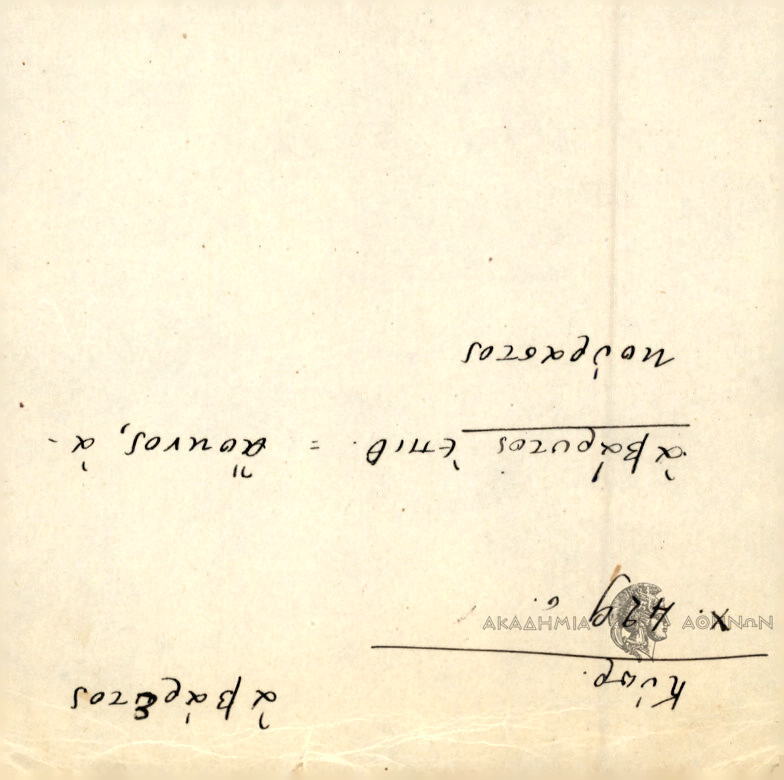 ἀβάρετος
Κύπρ.
Χ. 429
ἀβάρυτος ἐπιθ. = ἄοκνος, ἀ-
κούραστος
ΑΚΑΔΗΜΙΑ ΑΘΗΝΩΝ